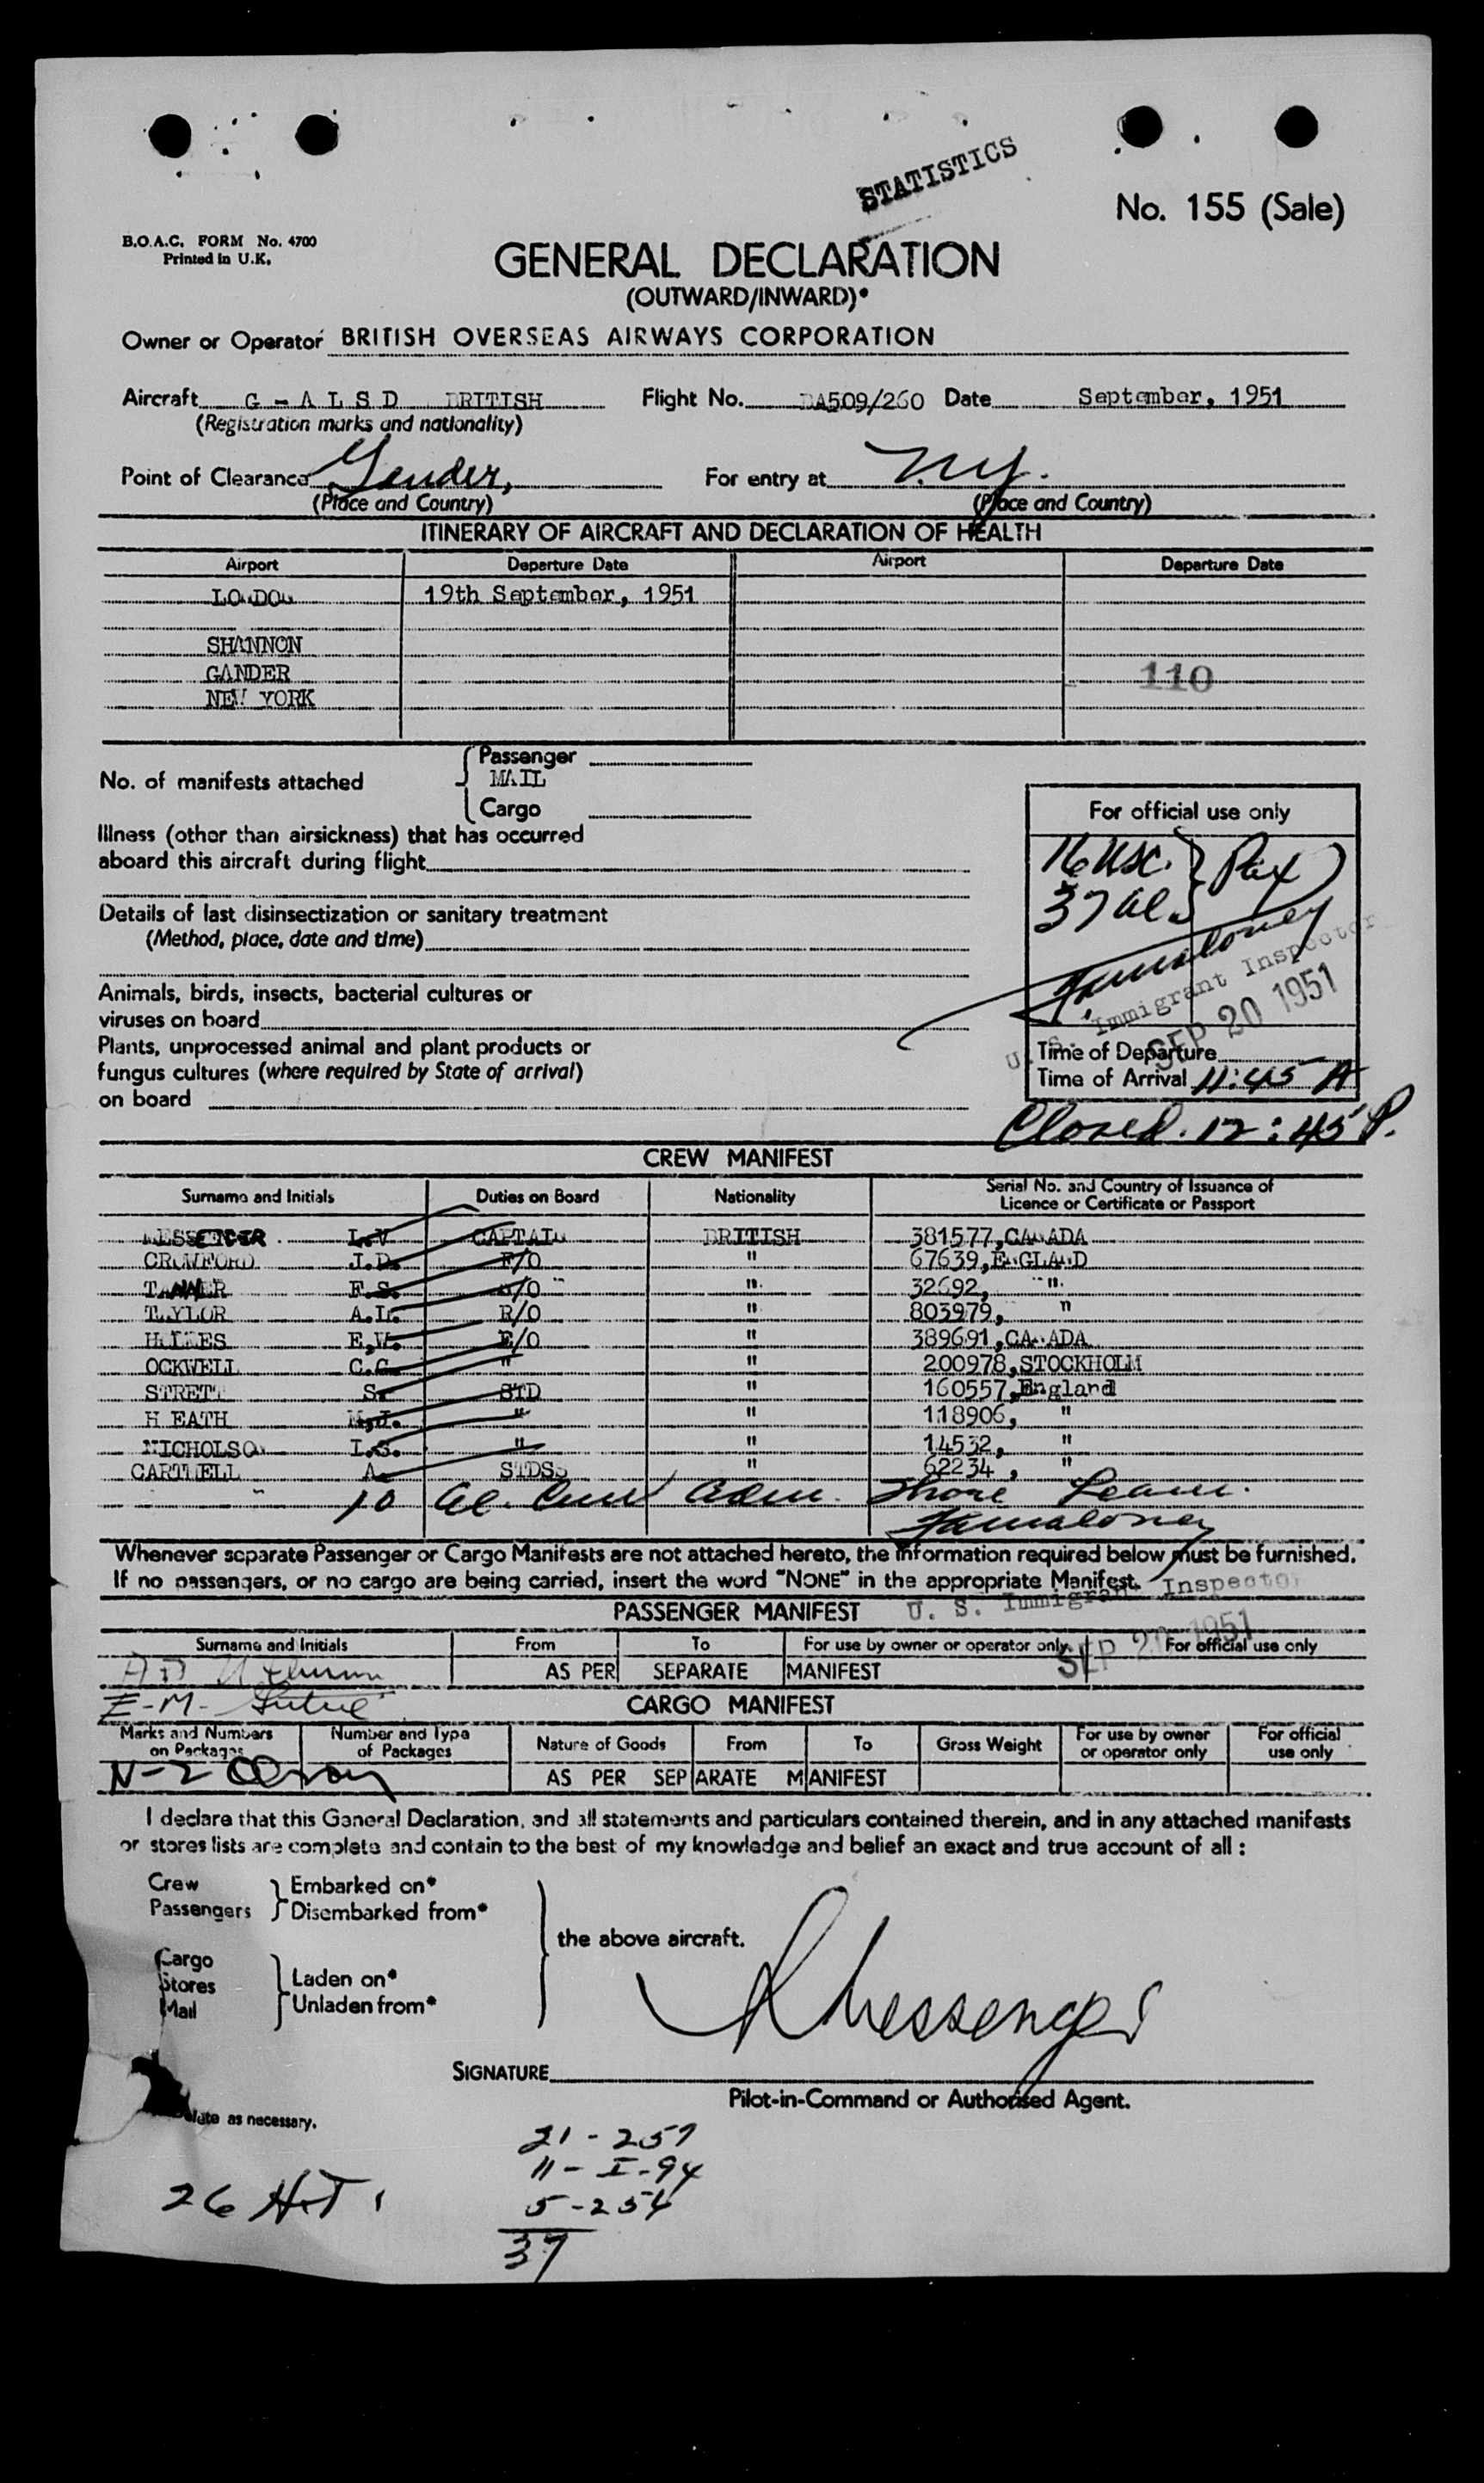 STATISTICS
No. 155 (Sale)
B.O.A.C. FORM No. 4700
Printed in U.K.
GENERAL DECLARATION
(OUTWARD/INWARD)*
Owner or Operator BRITISH OVERSEAS AIRWAYS CORPORATION
Aircraft G - A L S D BRITISH Flight No. BA509/260 Date September, 1951
(Registration marks and nationality)
Point of Clearance Gander, For entry at N.Y.
(Place and Country) (Place and Country)
ITINERARY OF AIRCRAFT AND DECLARATION OF HEALTH
Airport Departure Date Airport Departure Date
LONDON 19th September, 1951
SHANNON
GANDER 110
NEW YORK
No. of manifests attached
Passenger
MAIL
Cargo
Illness (other than airsickness) that has occurred
aboard this aircraft during flight
Details of last disinsectization or sanitary treatment
(Method, place, date and time)
Animals, birds, insects, bacterial cultures or
viruses on board
Plants, unprocessed animal and plant products or
fungus cultures (where required by State of arrival)
on board
For official use only
16 USC. } Pax
37 Al.
U. S. Immigrant Inspector
SEP 20 1951
Time of Departure
Time of Arrival 11:45 A
Closed. 12:45 P.
CREW MANIFEST
Surname and Initials Duties on Board Nationality Serial No. and Country of Issuance of Licence or Certificate or Passport
MESSENGER L.V. CAPTAIN BRITISH 381577, CANADA
CRAWFORD J.D. F/O " 67639, ENGLAND
TANNER F.S. /O " 32692, "
TAYLOR A.L. R/O " 803979, "
E.W. E/O " 389691, CANADA
OCKWELL C.G. " " 200978, STOCKHOLM
STRETT S. STD " 160557, England
H EATH M.J. " " 118906, "
NICHOLSON I.S. " " 14532, "
CARTWELL A. STDSS " 62234, "
10 Al. Crew Adm. Shore Leave.
Whenever separate Passenger or Cargo Manifests are not attached hereto, the information required below must be furnished.
If no passengers, or no cargo are being carried, insert the word "NONE" in the appropriate Manifest.
U. S. Immigrant Inspector
PASSENGER MANIFEST
SEP 20 1951
Surname and Initials From To For use by owner or operator only. For official use only
AS PER SEPARATE MANIFEST
E-M-
CARGO MANIFEST
Marks and Numbers on Packages Number and Type of Packages Nature of Goods From To Gross Weight For use by owner or operator only For official use only
N-2 AS PER SEPARATE MANIFEST
I declare that this General Declaration, and all statements and particulars contained therein, and in any attached manifests
or stores lists are complete and contain to the best of my knowledge and belief an exact and true account of all :
Crew
Passengers
Embarked on*
Disembarked from*
Cargo
Stores
Mail
Laden on*
Unladen from*
the above aircraft.
Messenger
SIGNATURE
Pilot-in-Command or Authorised Agent.
as necessary.
21 - 257
11 - I - 94
5 - 254
37
26